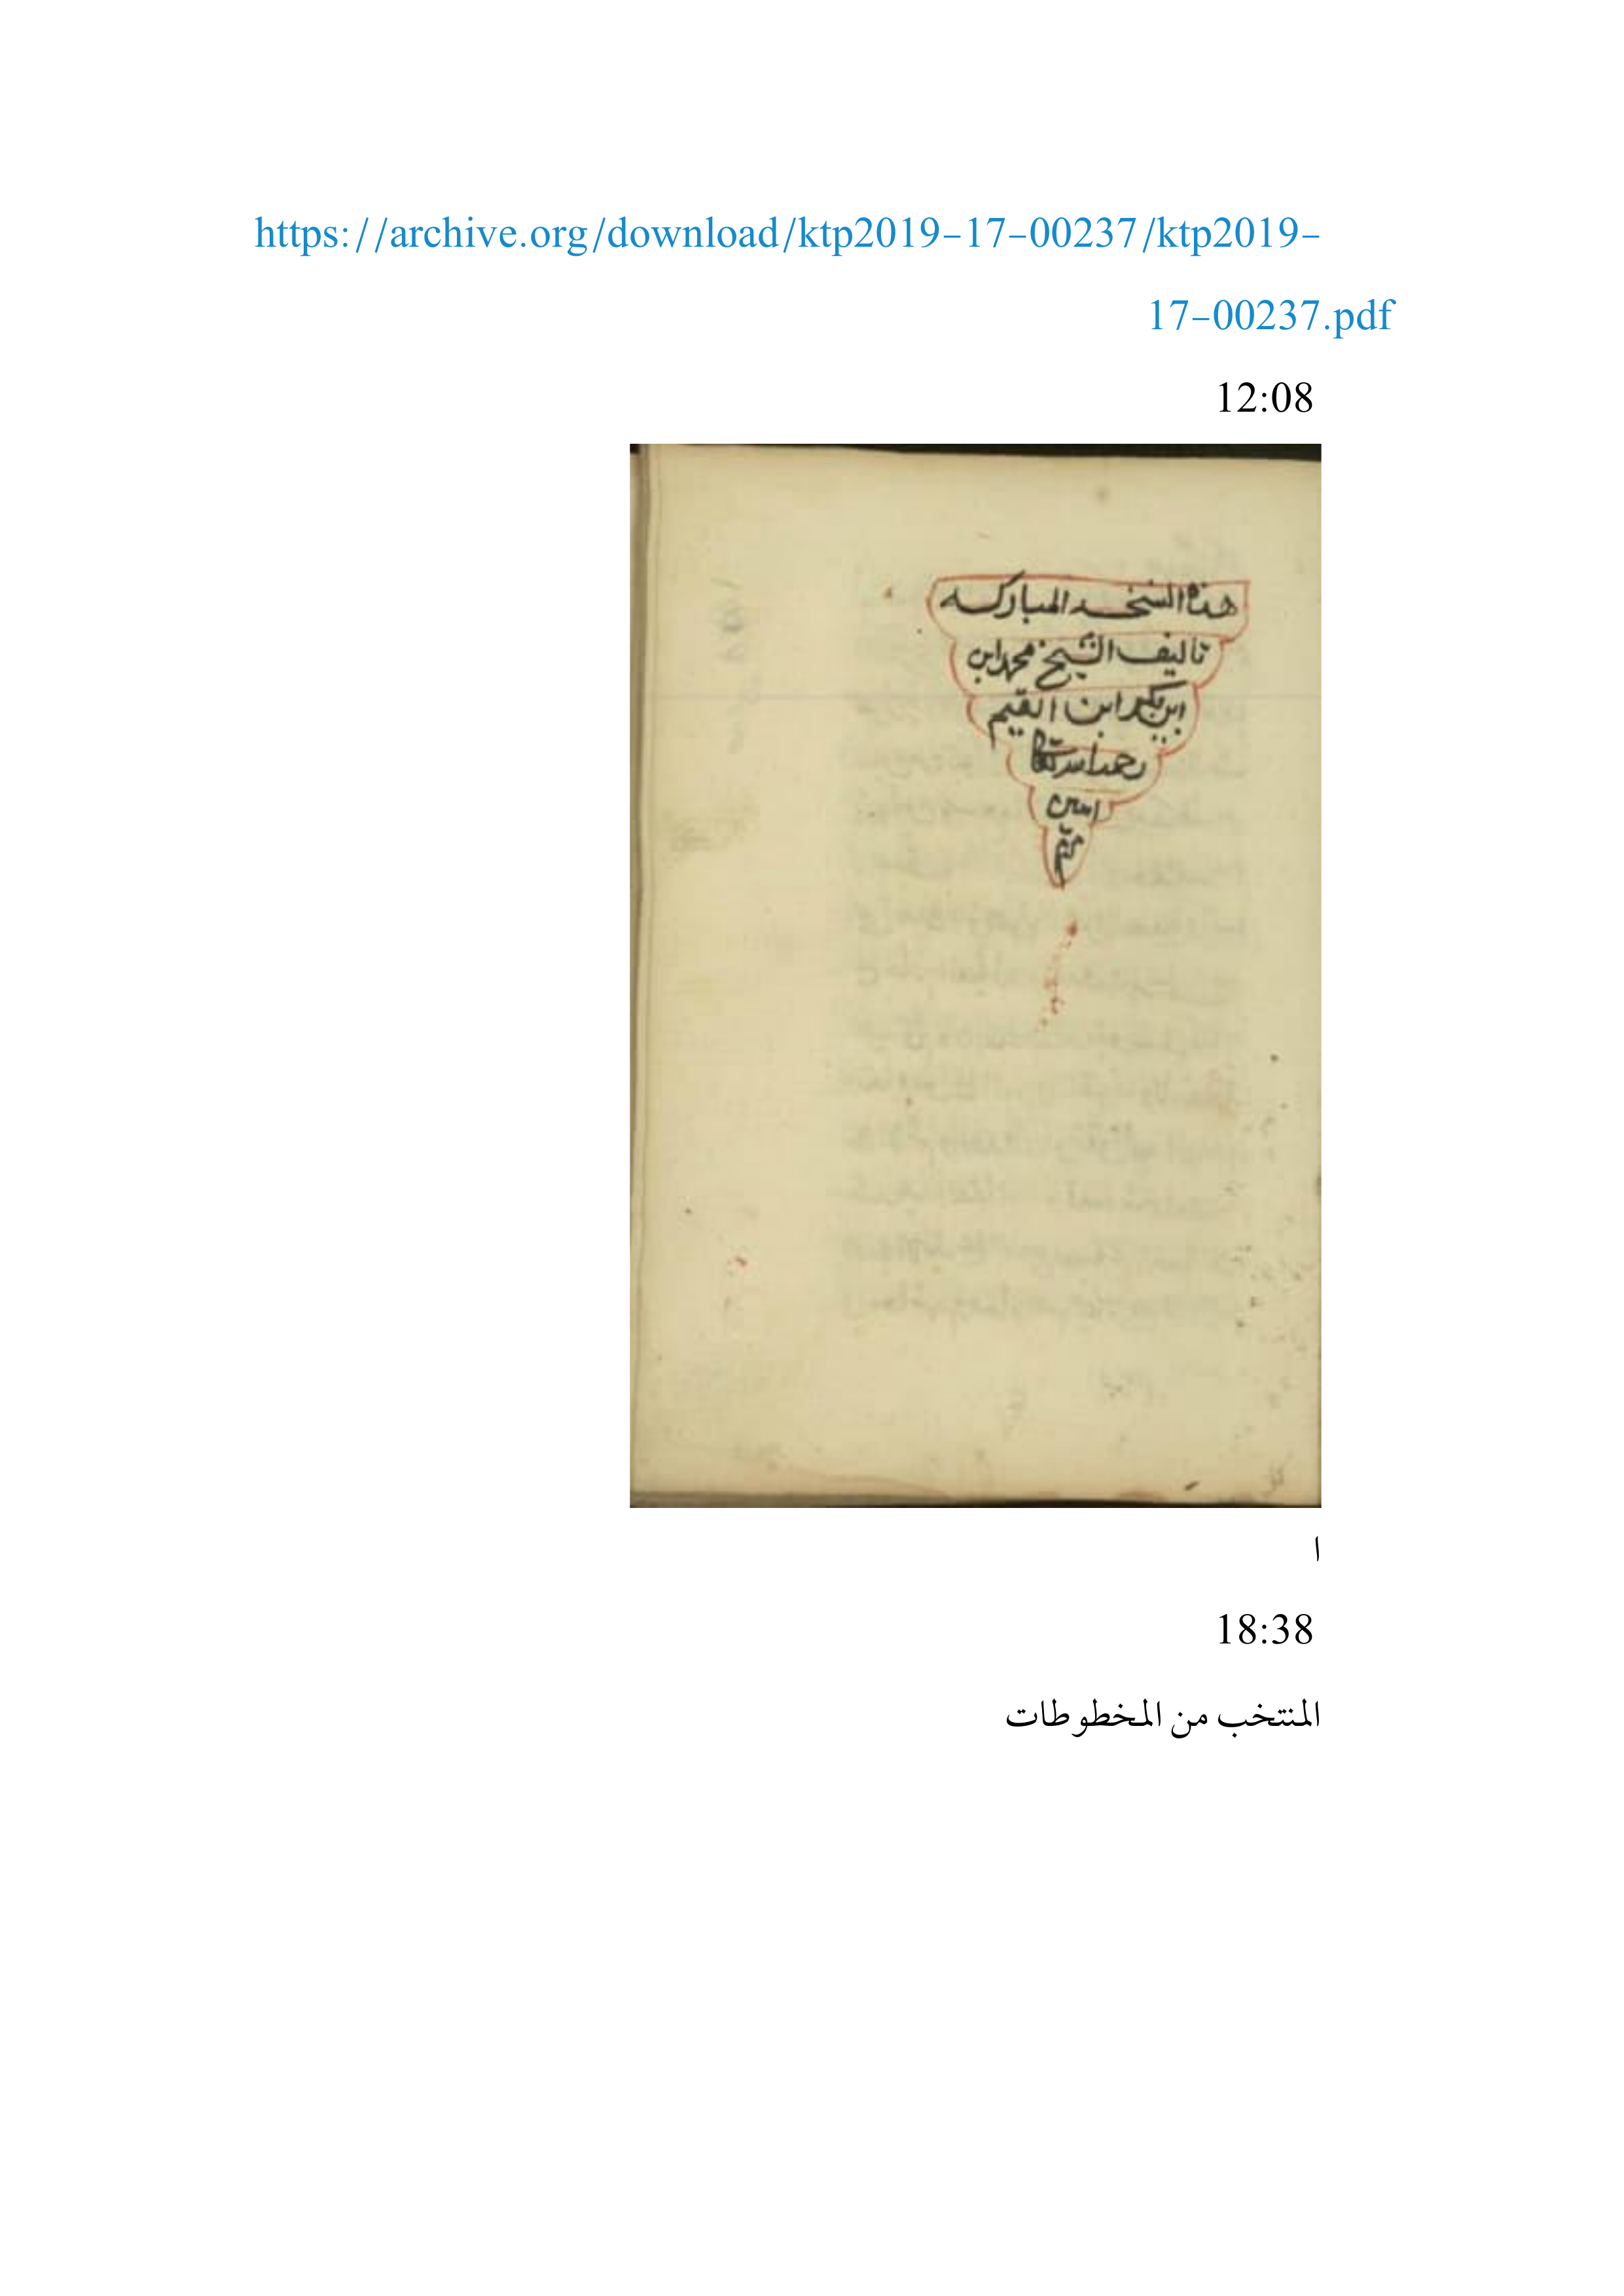 https://archive.org/download/ktp2019-17-00237/ktp2019-
17-00237.pdf
12:08
هذه النسخه المباركه
تاليف الشيخ محمد ابن
ابن بكر ابن القيم
رحمه الله تعالى
امين
ا
18:38
المنتخب من المخطوطات